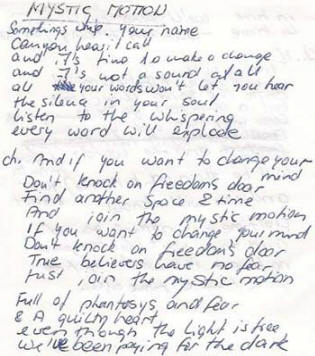 MYSTIC MOTION
Somethings whip. your name
Can you hear it call
and it's time to make a change
and it's not a sound at all
all your words won't let you hear
the silence in your soul
Listen to the whispering
every word will explode
ch. And if you want to change your mind
Don't knock on freedom's door
Find another space & time
And join the mystic motion
If you want to change your mind
Don't knock on freedom's door
True believers have no fear
Just join the mystic motion
Full of phantosys and fear
& A guilty heart
even though the light is free
We've been paying for the dark